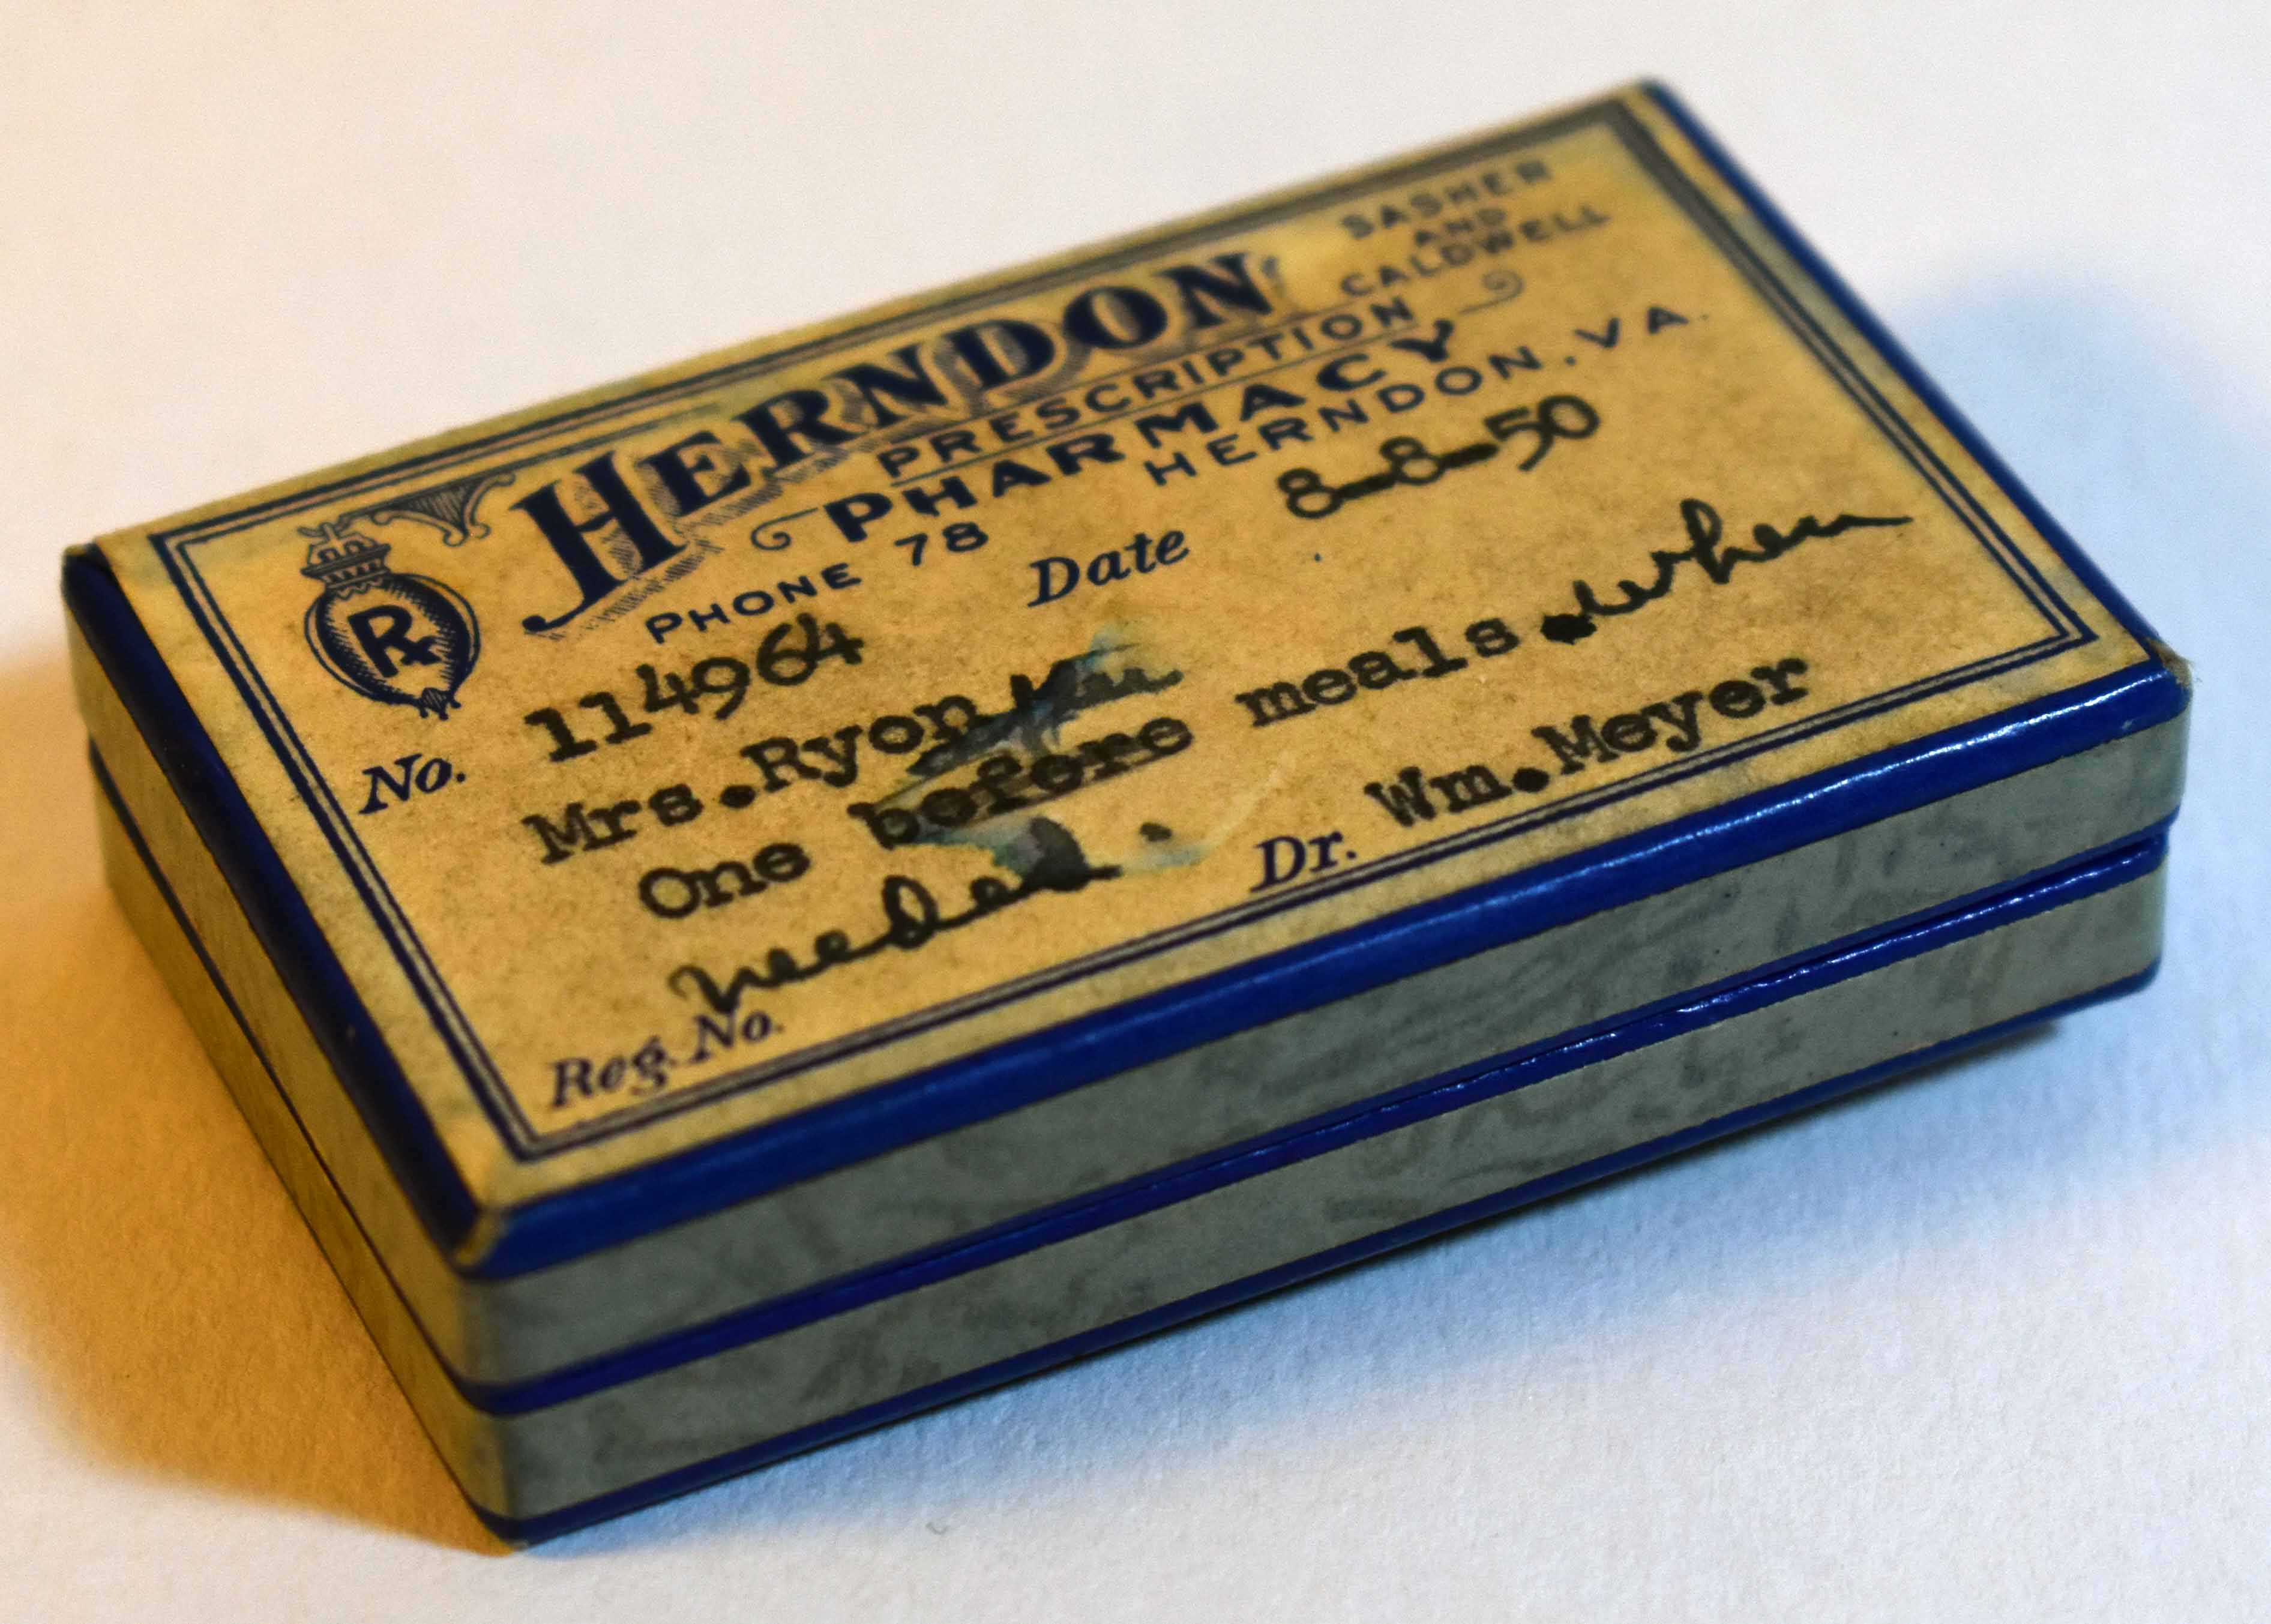 SASHER
AND
CALDWELL
HERNDON
PRESCRIPTION
PHARMACY
PHONE 78 HERNDON, VA.
Rx
No. 114964 Date 8-8-50
Mrs. Ryon
One before meals. when
needed.
Reg. No. Dr. Wm. Meyer